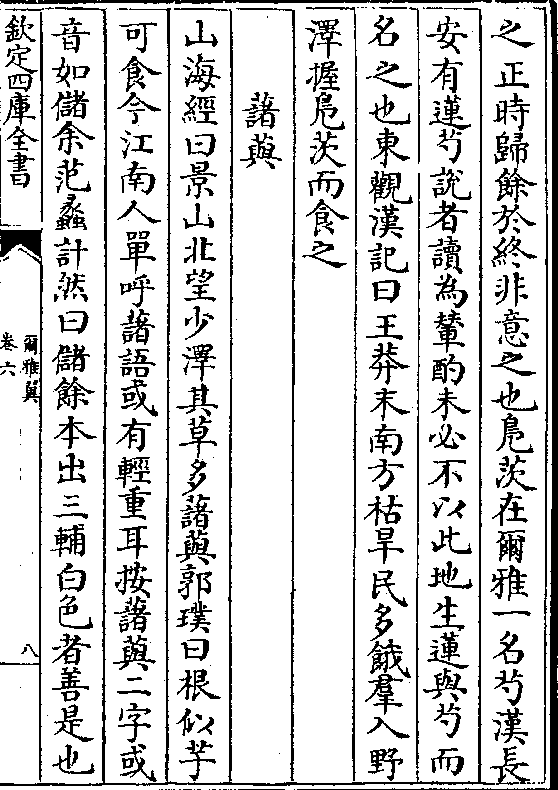 之正時歸餘於終非意之也鳬茨在爾雅一名芍漢長
安有蓮芍說者讀為輦酌未必不以此地生蓮與芍而
名之也東觀漢記曰王莽末南方枯旱民多餓羣入野
澤握鳬茨而食之
藷藇
山海經曰景山北望少澤其草多藷藇郭璞曰根似芋
可食今江南人單呼藷語或有輕重耳按藷藇二字或
音如儲余范蠡計然曰儲餘本出三輔白色者善是也
欽定四庫全書
爾雅翼
卷六
八